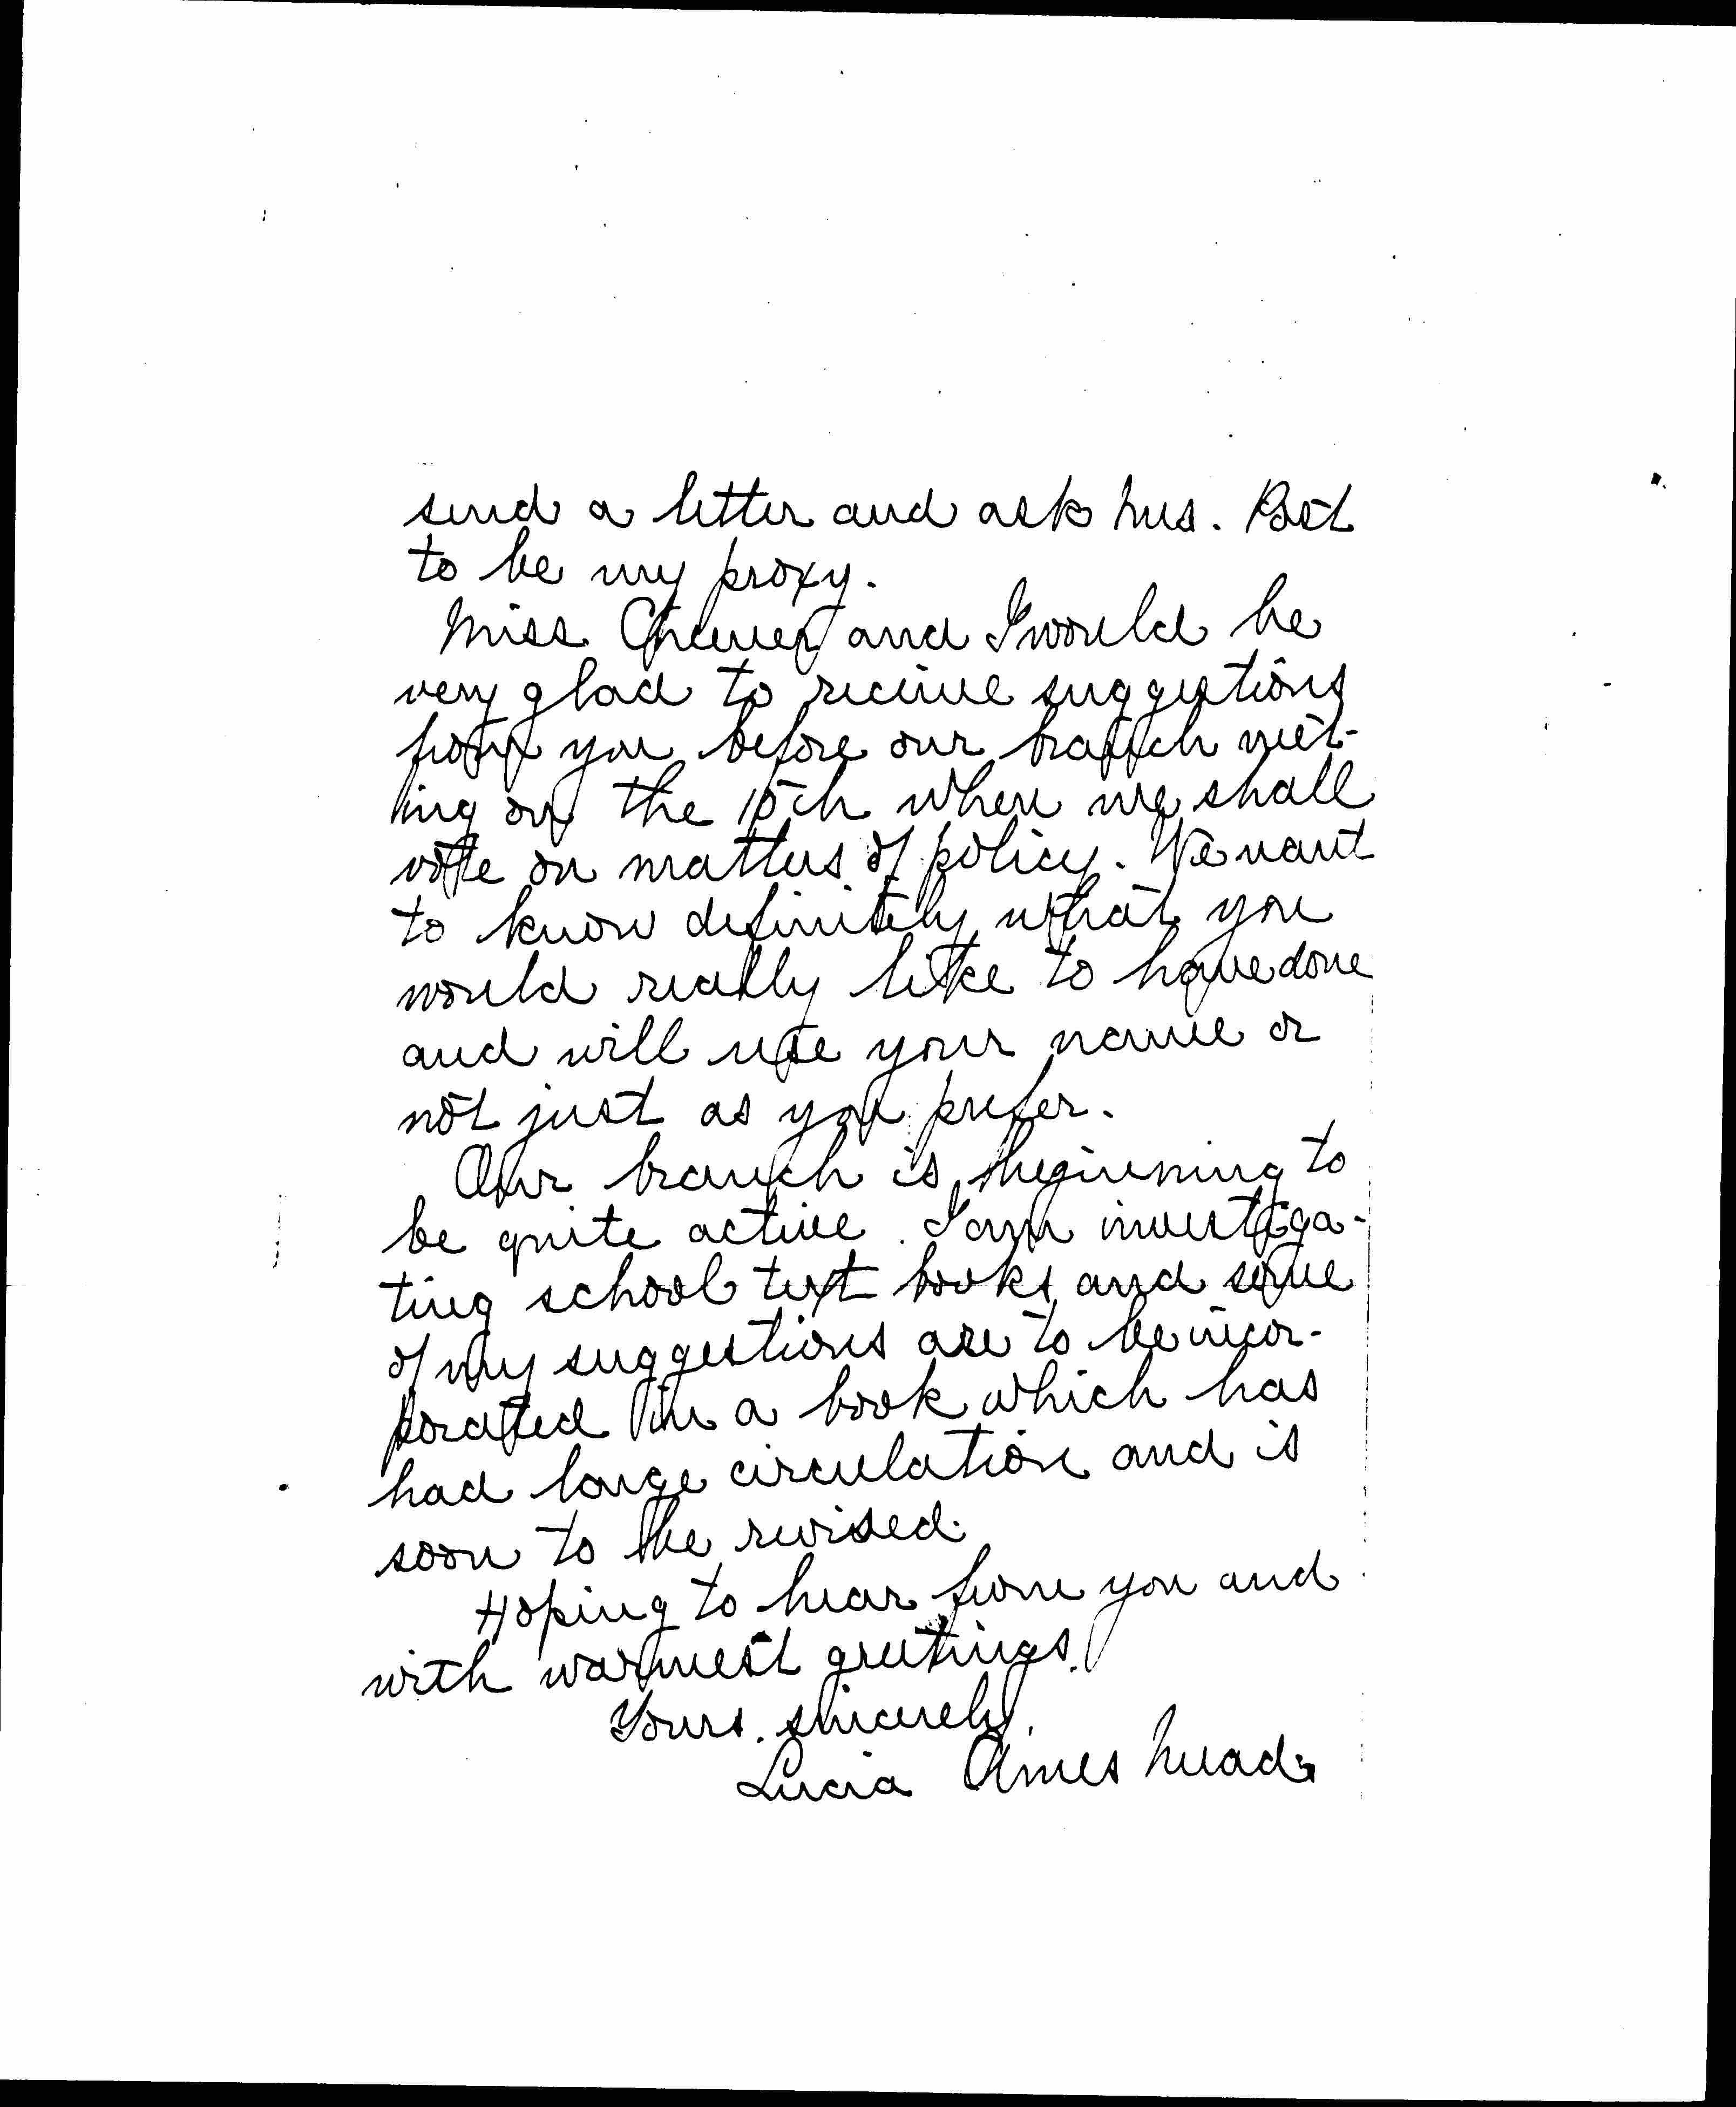 send a letter and ask Mrs. Post
to be my proxy.
Miss Cheever and I would be
very glad to receive suggestions
from you before our branch meet-
ing on the 15th when we shall
vote on matters of policy. We want
to know definitely what you
would really like to have done
and will use your name or
not just as you prefer.
Our branch is beginning to
be quite active. I am investiga-
ting school text books and some
of my suggestions are to be incor-
porated in a book which has
had large circulation and is
soon to be revised.
Hoping to hear from you and
with warmest greetings.
Yours sincerely,
Lucia Ames Mead